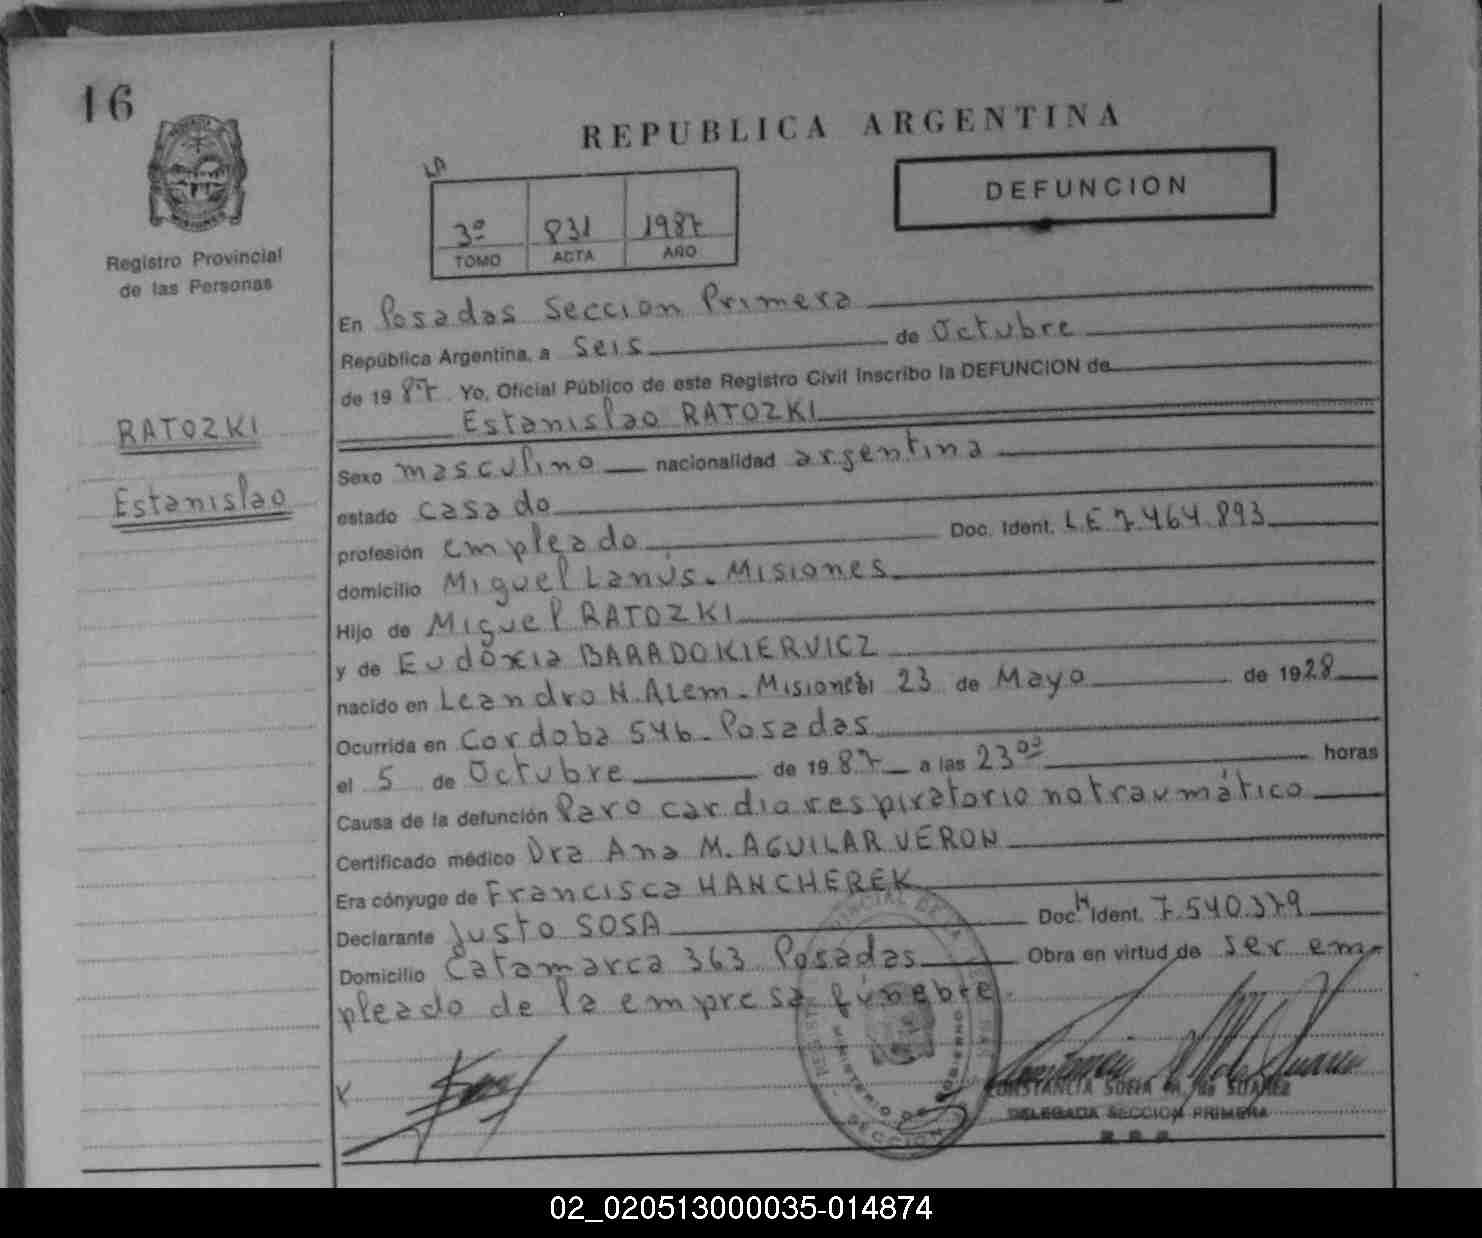 16
REPUBLICA ARGENTINA
LA
DEFUNCION
3º 831 1987
TOMO ACTA AÑO
Registro Provincial
de las Personas
RATOZKI
Estanislao
En Posadas Seccion Primera
República Argentina, a Seis de Octubre
de 1987. Yo, Oficial Público de este Registro Civil inscribo la DEFUNCION de
Estanislao RATOZKI
Sexo masculino nacionalidad argentina
estado casado
profesión empleado Doc. Ident. L.E 7.464.893
domicilio Miguel Lanús. Misiones
Hijo de Miguel RATOZKI
y de Eudoxia BARADOKIERVICZ
nacido en Leandro N. Alem - Misiones 23 de Mayo de 1928
Ocurrida en Cordoba 546 - Posadas
el 5 de Octubre de 1987 a las 23 horas
Causa de la defunción Paro cardiorespiratorio no traumático
Certificado médico Dra Ana M. AGUILAR VERON
Era cónyuge de Francisca HANCHEREK
Declarante Justo SOSA Doc. Ident. M 7.540.379
Domicilio Catamarca 363 Posadas Obra en virtud de ser em-
pleado de la empresa fúnebre.
MINISTERIO DE GOBIERNO
SECCION
CONSTANCIA SOFIA M. de SUAREZ
DELEGADA SECCION PRIMERA
02_020513000035-014874